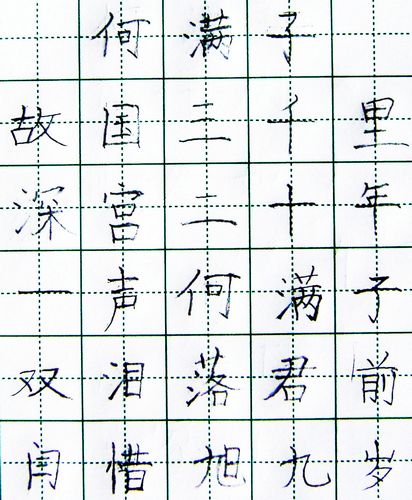 何满子
故国三千里
深宫二十年
一声何满子
双泪落君前
闫惜旭九岁